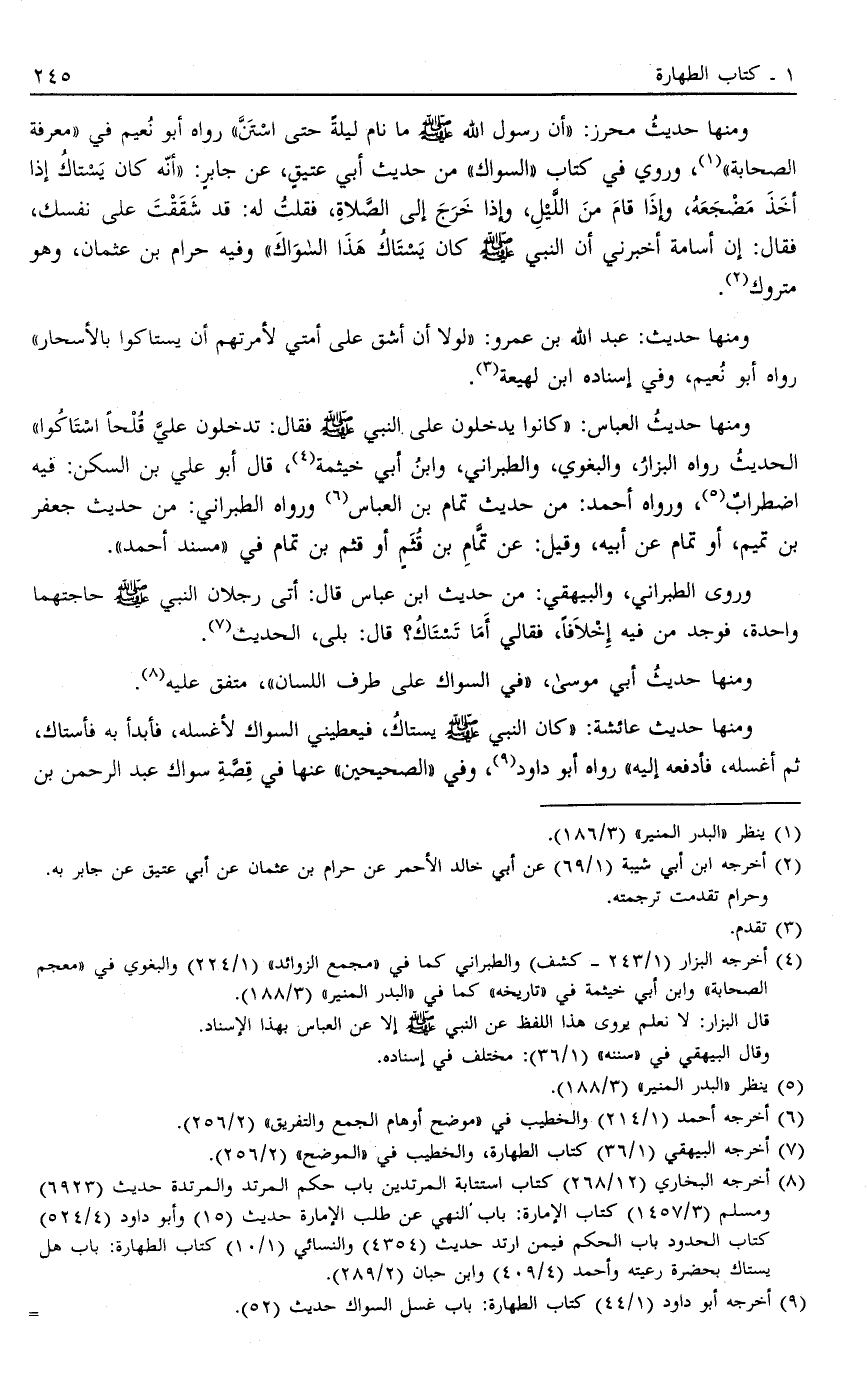 ١ ـ كتاب الطهارة ٢٤٥
ومنها حديثُ محرز: «أن رسول الله ﷺ ما نام ليلةً حتى اسْتَنَّ» رواه أبو نُعيم في «معرفة
الصحابة»(١)، وروي في كتاب «السواك» من حديث أبي عتيقٍ، عن جابرٍ: «أنّه كان يَسْتاكُ إذا
أخَذَ مَضْجَعَهُ، وإذَا قامَ منَ اللَّيْلِ، وإذا خَرَجَ إلى الصَّلاةِ، فقلتُ له: قد شَقَقْتَ على نفسك،
فقال: إن أسامة أخبرني أن النبي ﷺ كان يَسْتَاكُ هَذَا السِّوَاكَ» وفيه حرام بن عثمان، وهو
متروك(٢).
ومنها حديث: عبد الله بن عمرو: «لولا أن أشق على أمتي لأمرتهم أن يستاكوا بالأسحار»
رواه أبو نُعيم، وفي إسناده ابن لهيعة(٣).
ومنها حديثُ العباس: «كانوا يدخلون على النبي ﷺ فقال: تدخلون عليَّ قُلْحاً اسْتَاكُوا»
الحديثُ رواه البزارُ، والبغوي، والطبراني، وابنُ أبي خيثمة(٤)، قال أبو علي بن السكن: فيه
اضطرابٌ(٥)، ورواه أحمد: من حديث تمام بن العباس(٦) ورواه الطبراني: من حديث جعفر
بن تميم، أو تمام عن أبيه، وقيل: عن تمَّامِ بن قُثَمٍ أو قثم بن تمام في «مسند أحمد».
وروى الطبراني، والبيهقي: من حديث ابن عباس قال: أتى رجلان النبي ﷺ حاجتهما
واحدة، فوجد من فيه إِخْلَافاً، فقالي أَمَا تَسْتَاكُ؟ قال: بلى، الحديث(٧).
ومنها حديثُ أبي موسىٰ، «في السواك على طرف اللسان»، متفق عليه(٨).
ومنها حديث عائشة: «كان النبي ﷺ يستاكُ، فيعطيني السواك لأغسله، فأبدأ به فأستاك،
ثم أغسله، فأدفعه إليه» رواه أبو داود(٩)، وفي «الصحيحين» عنها في قِصَّةِ سواك عبد الرحمن بن
(١) ينظر «البدر المنير» (١٨٦/٣).
(٢) أخرجه ابن أبي شيبة (٦٩/١) عن أبي خالد الأحمر عن حرام بن عثمان عن أبي عتيق عن جابر به.
وحرام تقدمت ترجمته.
(٣) تقدم.
(٤) أخرجه البزار (٢٤٣/١ ـ كشف) والطبراني كما في «مجمع الزوائد» (٢٢٤/١) والبغوي في «معجم
الصحابة» وابن أبي خيثمة في «تاريخه» كما في «البدر المنير» (١٨٨/٣).
قال البزار: لا نعلم يروى هذا اللفظ عن النبي ﷺ إلا عن العباس بهذا الإسناد.
وقال البيهقي في «سننه» (٣٦/١): مختلف في إسناده.
(٥) ينظر «البدر المنير» (١٨٨/٣).
(٦) أخرجه أحمد (٢١٤/١) والخطيب في «موضح أوهام الجمع والتفريق» (٢٥٦/٢).
(٧) أخرجه البيهقي (٣٦/١) كتاب الطهارة، والخطيب في «الموضح» (٢٥٦/٢).
(٨) أخرجه البخاري (٢٦٨/١٢) كتاب استتابة المرتدين باب حكم المرتد والمرتدة حديث (٦٩٢٣)
ومسلم (١٤٥٧/٣) كتاب الإمارة: باب النهي عن طلب الإمارة حديث (١٥) وأبو داود (٥٢٤/٤)
كتاب الحدود باب الحكم فيمن ارتد حديث (٤٣٥٤) والنسائي (١٠/١) كتاب الطهارة: باب هل
يستاك بحضرة رعيته وأحمد (٤٠٩/٤) وابن حبان (٢٨٩/٢).
(٩) أخرجه أبو داود (٤٤/١) كتاب الطهارة: باب غسل السواك حديث (٥٢). =